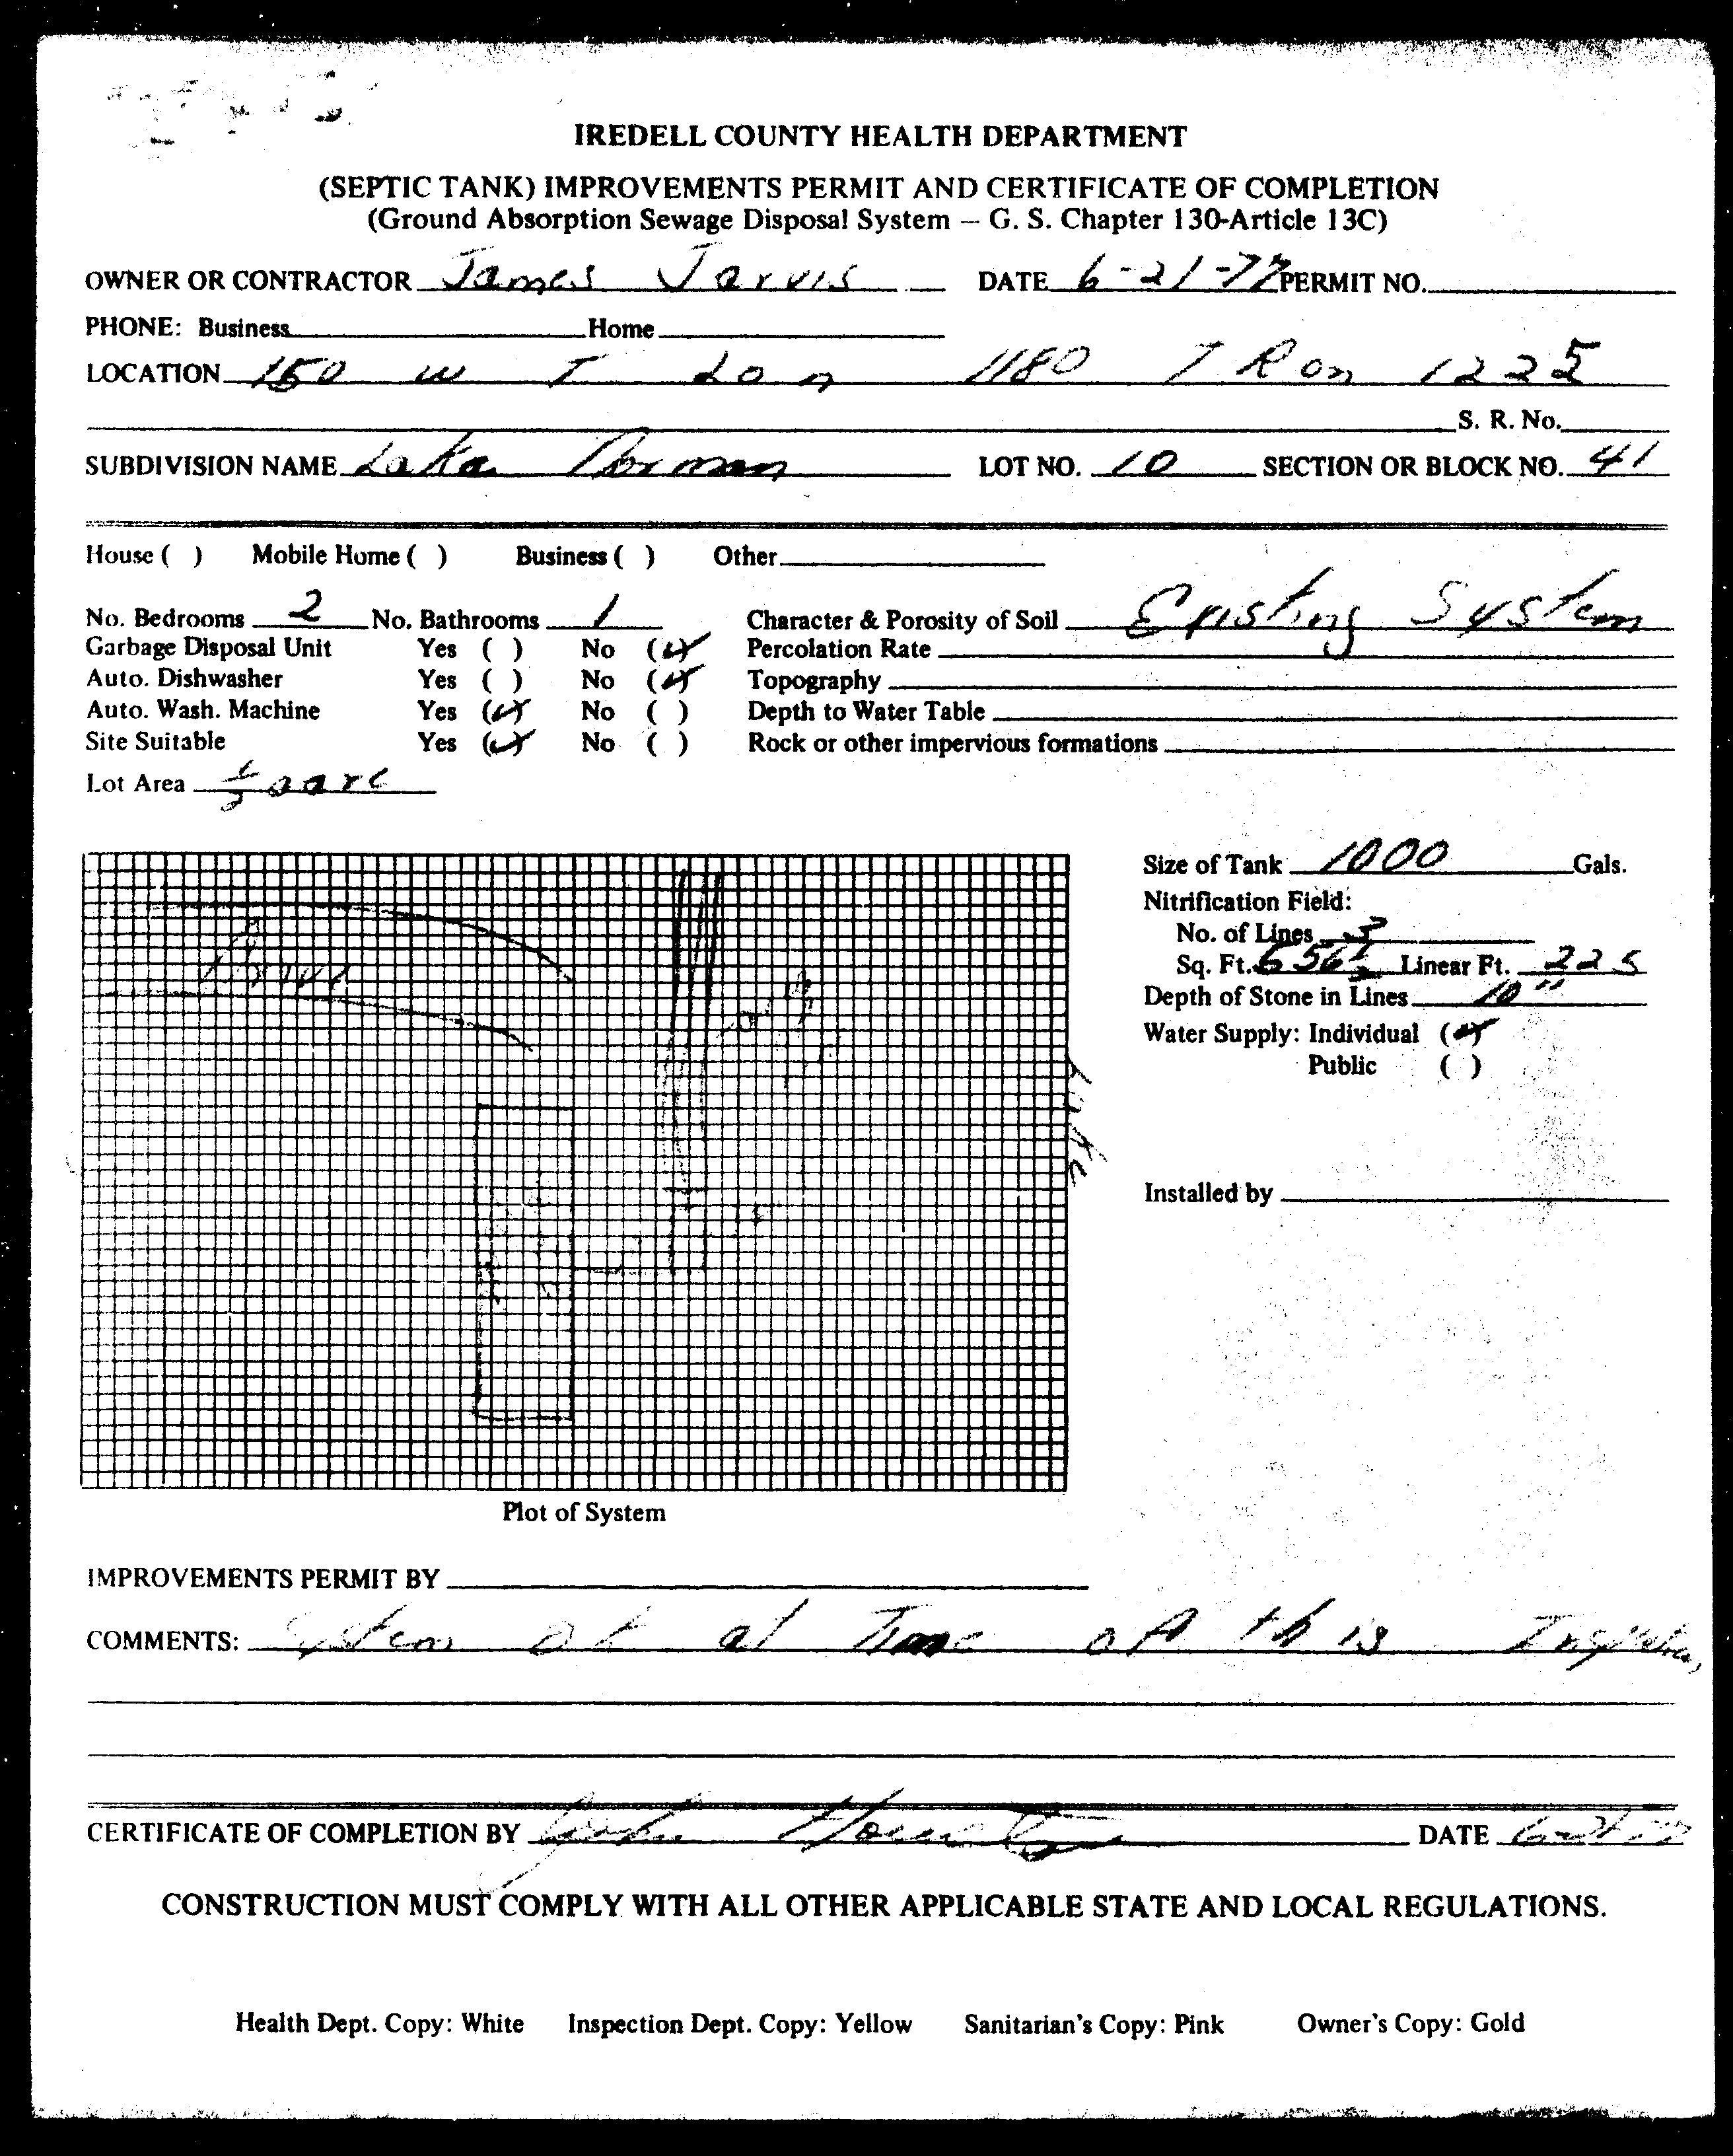 IREDELL COUNTY HEALTH DEPARTMENT
(SEPTIC TANK) IMPROVEMENTS PERMIT AND CERTIFICATE OF COMPLETION
(Ground Absorption Sewage Disposal System — G. S. Chapter 130-Article 13C)
OWNER OR CONTRACTOR James Jarvis DATE 6-21-77 PERMIT NO.
PHONE: Business Home
LOCATION 150 W T L on 1180 T R on 1225
S. R. No.
SUBDIVISION NAME Lake Norman LOT NO. 10 SECTION OR BLOCK NO. 41
House ( ) Mobile Home ( ) Business ( ) Other
No. Bedrooms 2 No. Bathrooms 1 Character & Porosity of Soil Existing System
Garbage Disposal Unit Yes ( ) No (✓) Percolation Rate
Auto. Dishwasher Yes ( ) No (✓) Topography
Auto. Wash. Machine Yes (✓) No ( ) Depth to Water Table
Site Suitable Yes (✓) No ( ) Rock or other impervious formations
Lot Area
Size of Tank 1000 Gals.
Nitrification Field:
No. of Lines 3
Sq. Ft. Linear Ft. 225
Depth of Stone in Lines 10"
Water Supply: Individual (✓)
Public ( )
Installed by
Plot of System
IMPROVEMENTS PERMIT BY
COMMENTS: System ok at Time of this
CERTIFICATE OF COMPLETION BY John DATE
CONSTRUCTION MUST COMPLY WITH ALL OTHER APPLICABLE STATE AND LOCAL REGULATIONS.
Health Dept. Copy: White Inspection Dept. Copy: Yellow Sanitarian's Copy: Pink Owner's Copy: Gold